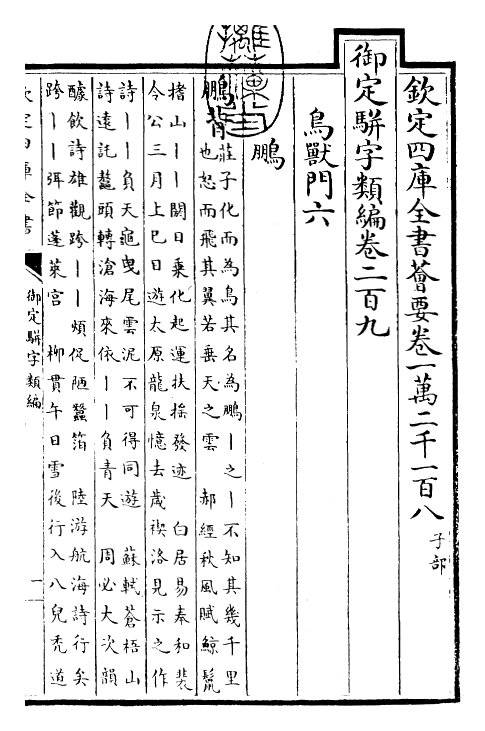 欽定四庫全書薈要卷一萬二千一百八 子部
御定駢字類編卷二百九
鳥獸門六
鵬
鵬背
莊子化而為鳥其名為鵬丨之丨不知其幾千里
也怒而飛其翼若垂天之雲 郝經秋風賦鯨鬣
揩山丨丨闕日乗化起運扶揺發迹 白居易奉和裴
令公三月上巳日遊太原龍泉憶去歲禊洛見示之作
詩丨丨負天龜曳尾雲泥不可得同遊 蘇軾蒼梧山
詩遠託鼇頭轉滄海來依丨丨負青天 周必大次韻
醵飲詩雄觀跨丨丨煩促陋蠶箔 陸游航海詩行矣
跨丨丨弭節蓬萊宫 柳貫午日雪後行入八兒禿道
欽定四庫全書
御定駢字類編
一